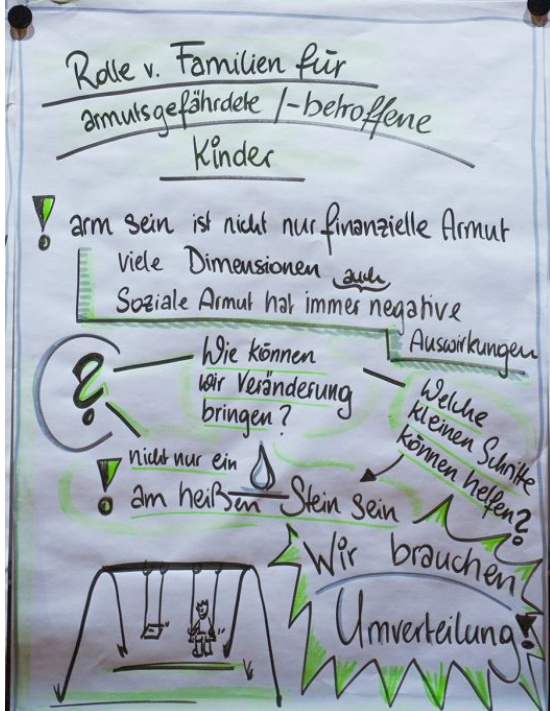 Rolle v. Familien für
armutsgefährdete /-betroffene
Kinder
! arm sein ist nicht nur finanzielle Armut
viele Dimensionen auch
Soziale Armut hat immer negative
Auswirkungen
?
Wie können
wir Veränderung
bringen?
Welche
kleinen Schritte
können helfen?
! nicht nur ein
am heißen Stein sein
Wir brauchen
Umverteilung!